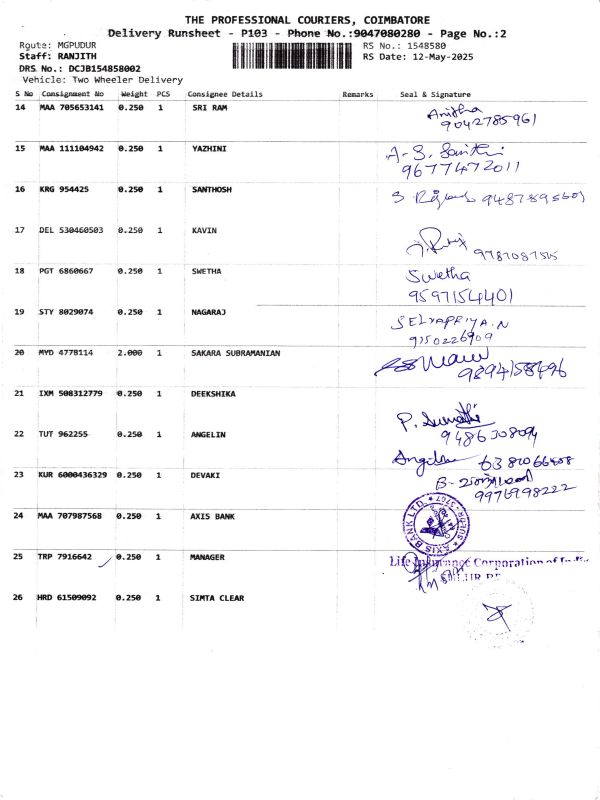 THE PROFESSIONAL COURIERS, COIMBATORE
Delivery Runsheet - P103 - Phone No.:9047080280 - Page No.:2
Route: MGPUDUR RS No.: 1548580
Staff: RANJITH RS Date: 12-May-2025
DRS No.: DCJB154858002
Vehicle: Two Wheeler Delivery
S No Consignment No Weight PCS Consignee Details Remarks Seal & Signature
14 MAA 705653141 0.250 1 SRI RAM Anitha
9042785961
15 MAA 111104942 0.250 1 YAZHINI
9677472011
16 KRG 954425 0.250 1 SANTHOSH
17 DEL 530460503 0.250 1 KAVIN
18 PGT 6860667 0.250 1 SWETHA Swetha
9597154401
19 STY 8029074 0.250 1 NAGARAJ SELVAPRIYA.N
9150226909
20 MYD 4778114 2.000 1 SAKARA SUBRAMANIAN
9894158496
21 IXM 508312779 0.250 1 DEEKSHIKA
22 TUT 962255 0.250 1 ANGELIN
23 KUR 6000436329 0.250 1 DEVAKI
9976998222
24 MAA 707987568 0.250 1 AXIS BANK AXIS BANK LTD.
25 TRP 7916642 0.250 1 MANAGER Life Insurance Corporation of
26 HRD 61509092 0.250 1 SIMTA CLEAR